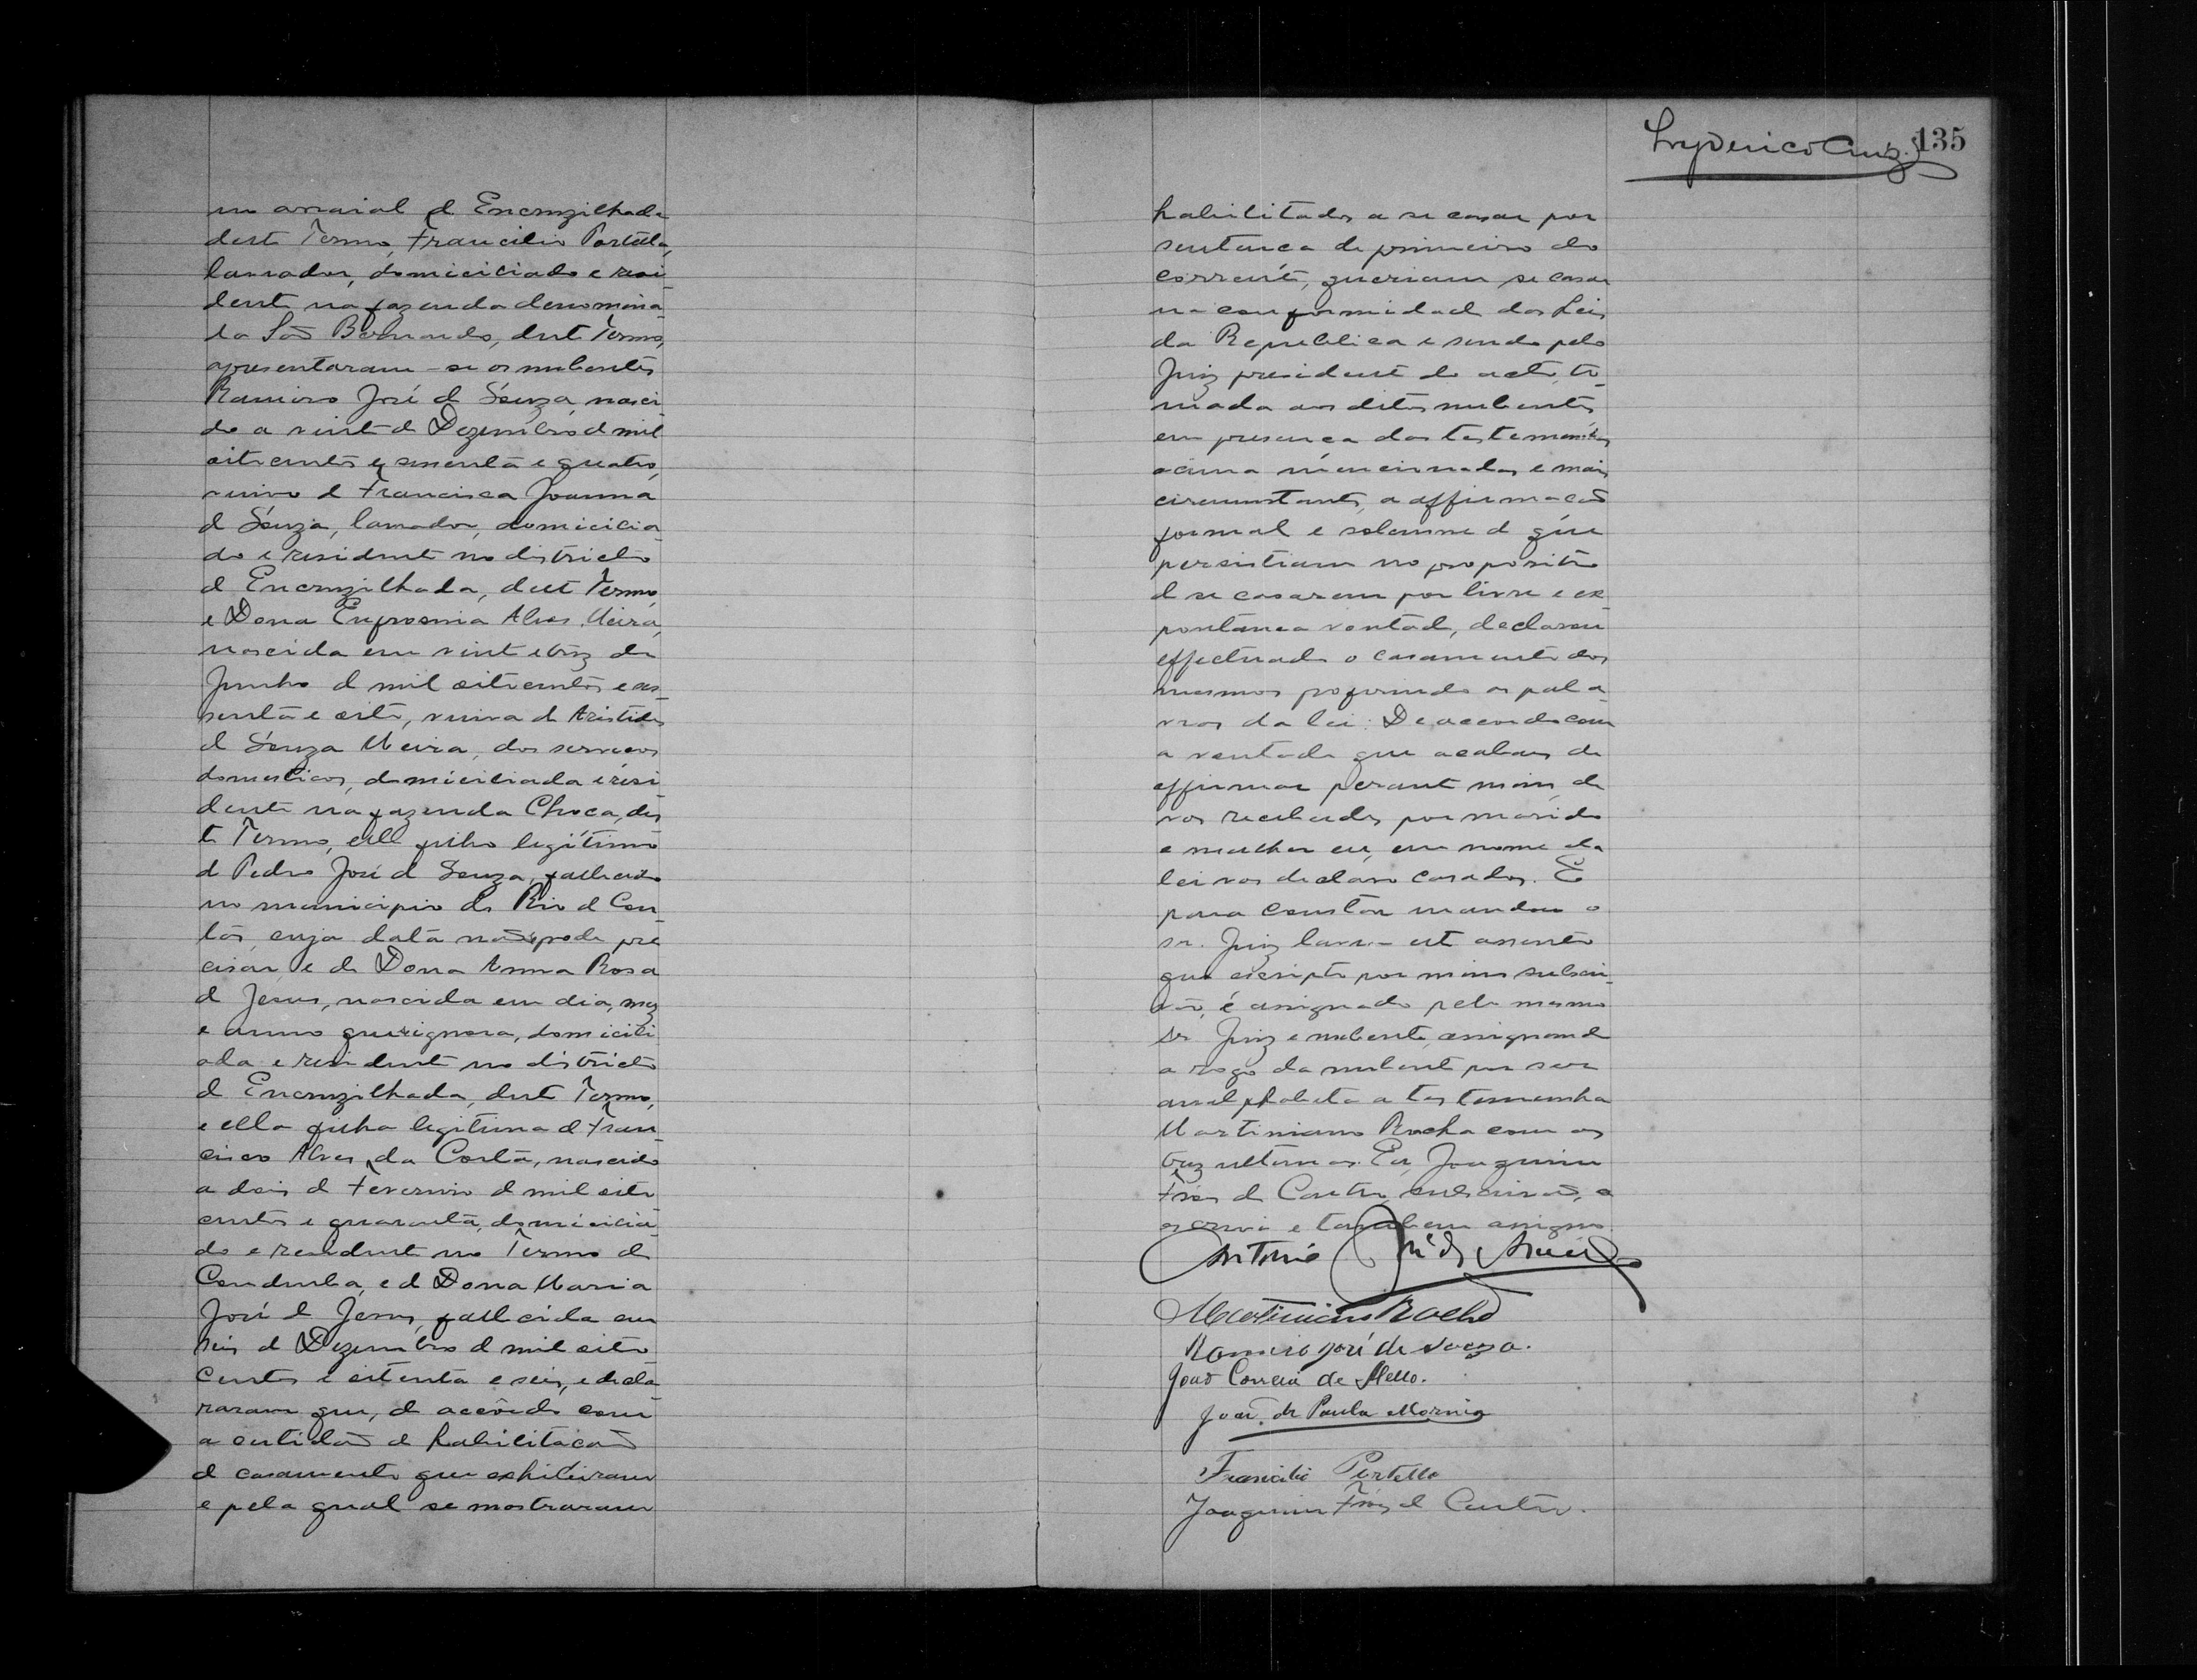 no arraial d Encruzilhada
deste Termo, Francilio Portella,
lavrador, domiciliado e resi-
dente na fazenda denomina-
da São Bernardo, deste Termo,
apresentaram-se os nubentes
Ramiro José d Souza, nasci-
do a vinte d Dezembro d mil
oitocentos e secenta e quatro,
viuvo d Francisca Joanna
d Souza, lavrador, domicilia-
do e residente no districto
d Encruzilhada, deste Termo,
e Dona Enfrosnia Alves Meira,
nascida em vinte e trez de
Junho d mil oitocentos e ses-
senta e oito, viuva de Aristides
d Souza Meira, dos serviços
domesticos, domiciliada e resi-
dente na fazenda Choca, des-
te Termo, elle filho legitimo
d Pedro José d Souza, fallecido
no municipio do Rio d Con-
tas, cuja data não pode pre
cisar e de Dona Anna Rosa
d Jesus, nascida em dia, mez
e anno que ignora, domicili-
ada e residente no districto
d Encruzilhada, deste Termo,
e ella filha legitima d Fran-
cisco Alves da Costa, nascido
a dois d Fevereiro d mil oito
centos e quarenta, domicilia-
do e residente no Termo de
Condeuba, e d Dona Maria
José d Jesus, fallecida em
seis d Dezembro d mil oito
centos e oitenta e seis, e decla-
raram que, d accôrdo com
a certidão d habilitação
d casamento que exhibiram
e pela qual se mostraram
135
habilitados a se casar por
sentença de primeiro do
corrente, queriam se casar
na conformidade das Leis
da Republica e sendo pelo
Juiz presidente do acto, to-
mada aos ditos nubentes
em presença das testemunhas
acima mencionadas e mais
circumstantes, a affirmação
formal e solemne d que
persistiam no proposito
d se casarem por livre e es-
pontanea vontade, declarou
effectuado o casamento dos
mesmos proferindo as pala-
vras da lei: De accordo com
a vontade que acabaes de
affirmar perante mim, de
vos receberdes por marido
e mulher eu, em nome da
lei vos declaro casados. E
para constar mandou o
sr. Juiz lavrar este assento
que escripto por mim escri-
vão, é assignado pelo mesmo
Sr. Juiz e nubente, assignando
a rogo da nubente por ser
analphabeta a testemunha
Martiniano Rocha com as
trez ultimas. Eu, Joaquim
Fróes d Castro, escrivão, o
escrevi e tambem assigno.
Antonio
Martiniano Rocha
Ramiro José de Souza.
João Correia de Mello.
João de Paula Moreira
Francilio Portella
Joaquim Fróes d Castro.